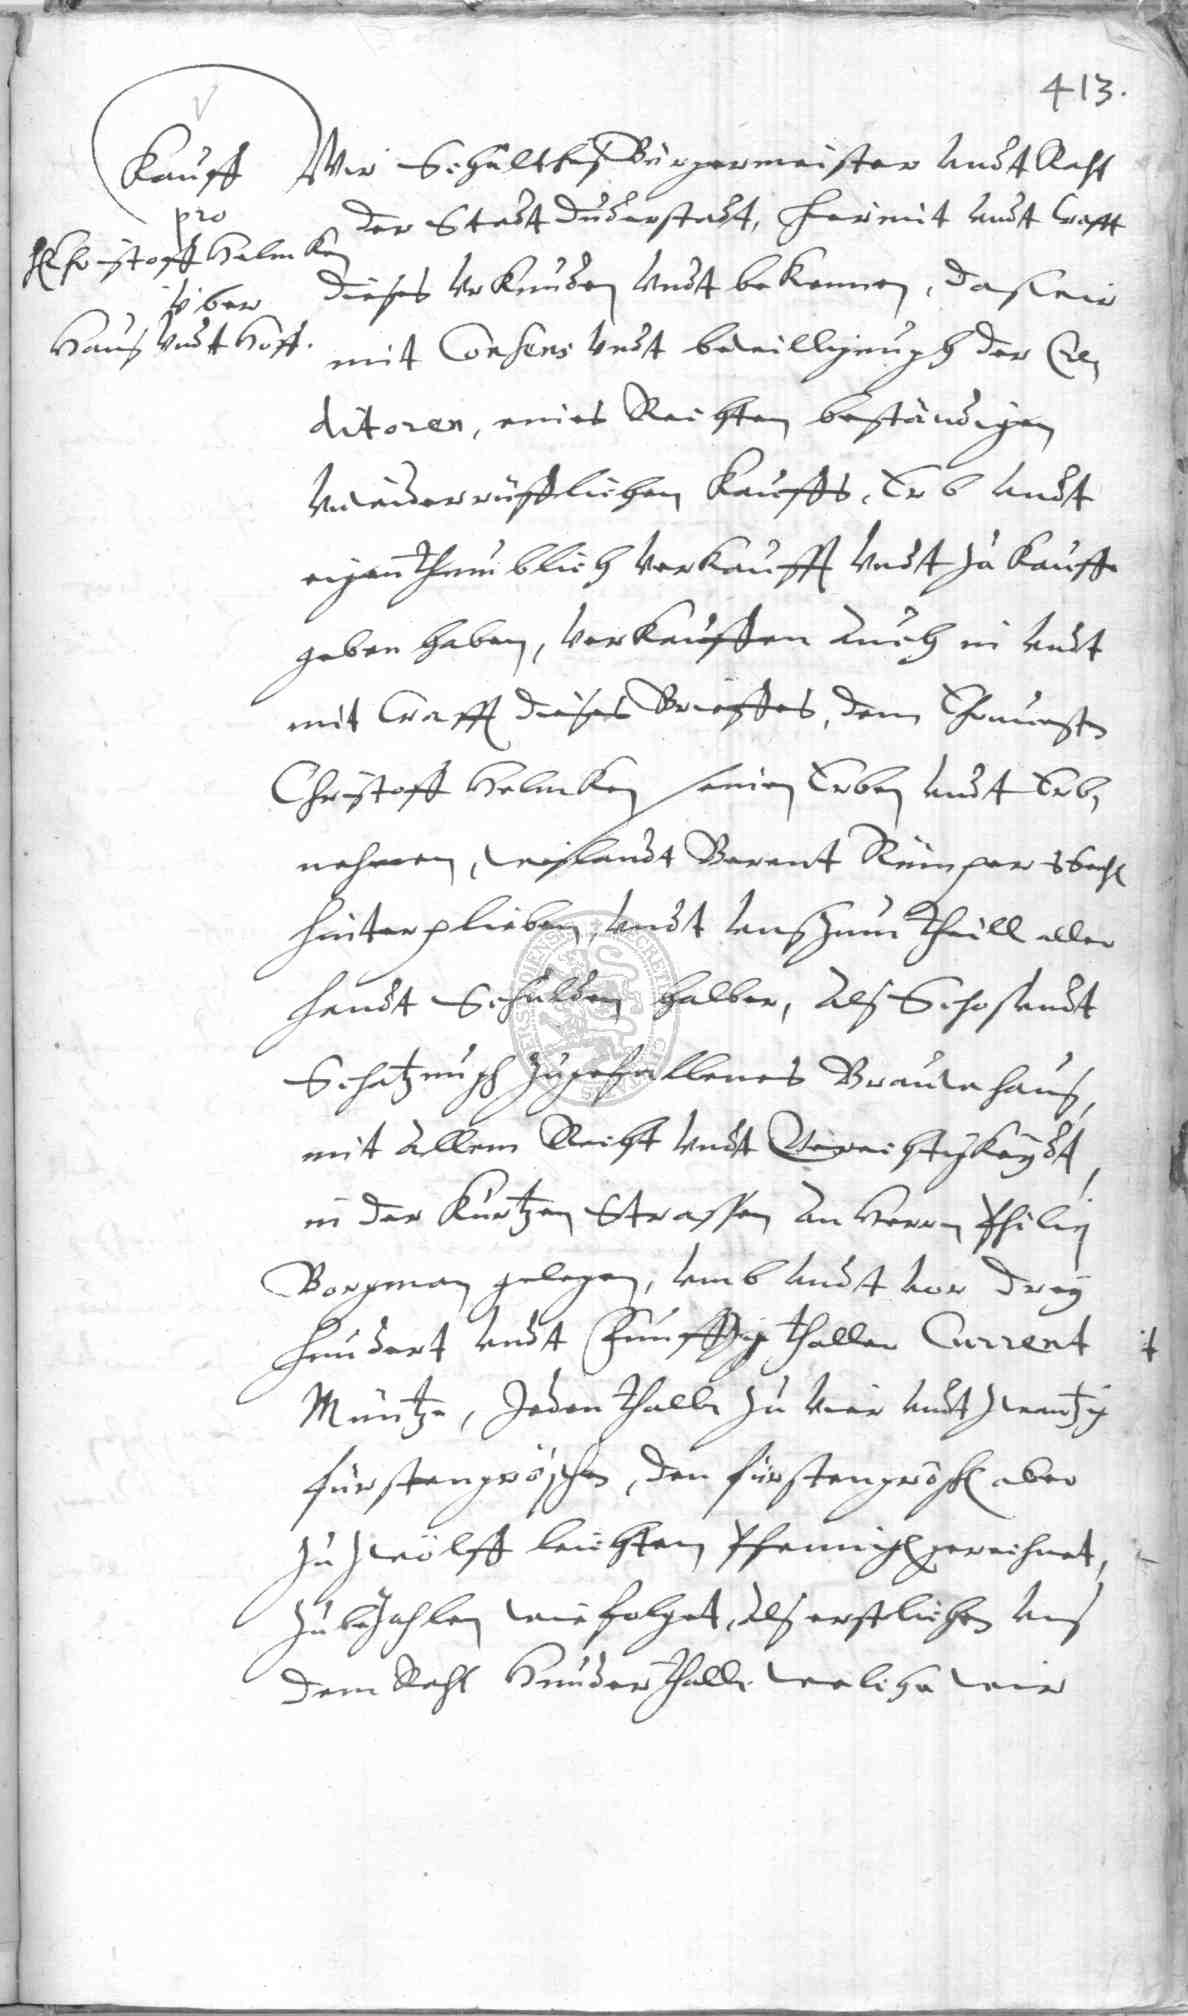 413.
Kauff
pro
H. Christoff Helmken
über
Hauß vndt Hoff.
Wir Schultheß Bürgermeister vndt Raht
der Stadt Duderstadt, hiermit vndt Crafft
dieses Vrkunden vndt bekennen, daß wir
mit Consens vndt bewilligungh der Cre,
ditoren, eines Rechten bestandigen
vnwiederrüfflichen Kauffs, Erb vndt
eigenthumblich verkaufft vndt zu Kauffe
geben haben, verkauffen auch in vndt
mit Crafft dieses Brieffes, dem
Christoff Helmken seinen Erben vndt Erb,
nehmen, weilandt Berent
hinterplieben, vndt vnß zum theill aller
handt Schulden halber, alß Schoß vndt
Schatzungh zugefallenes Brauwhauß,
mit allem Recht vndt Gerechtigkeydt,
in der Kurtzen Strassen an Herrn Philip
Borgman gelegen, vmb vndt vor drey
hundert vndt Funfftzig thaller Current
Müntze, Jeden thall. zu vier vndt zwantzig
fürstengröschen, den fürstengrosch. aber
zu zwölff leichten Pfennigh gerechnet,
zu bezahlen wie folget, alß erstlichen vnß
dem Raht Hundert thall. welche wir